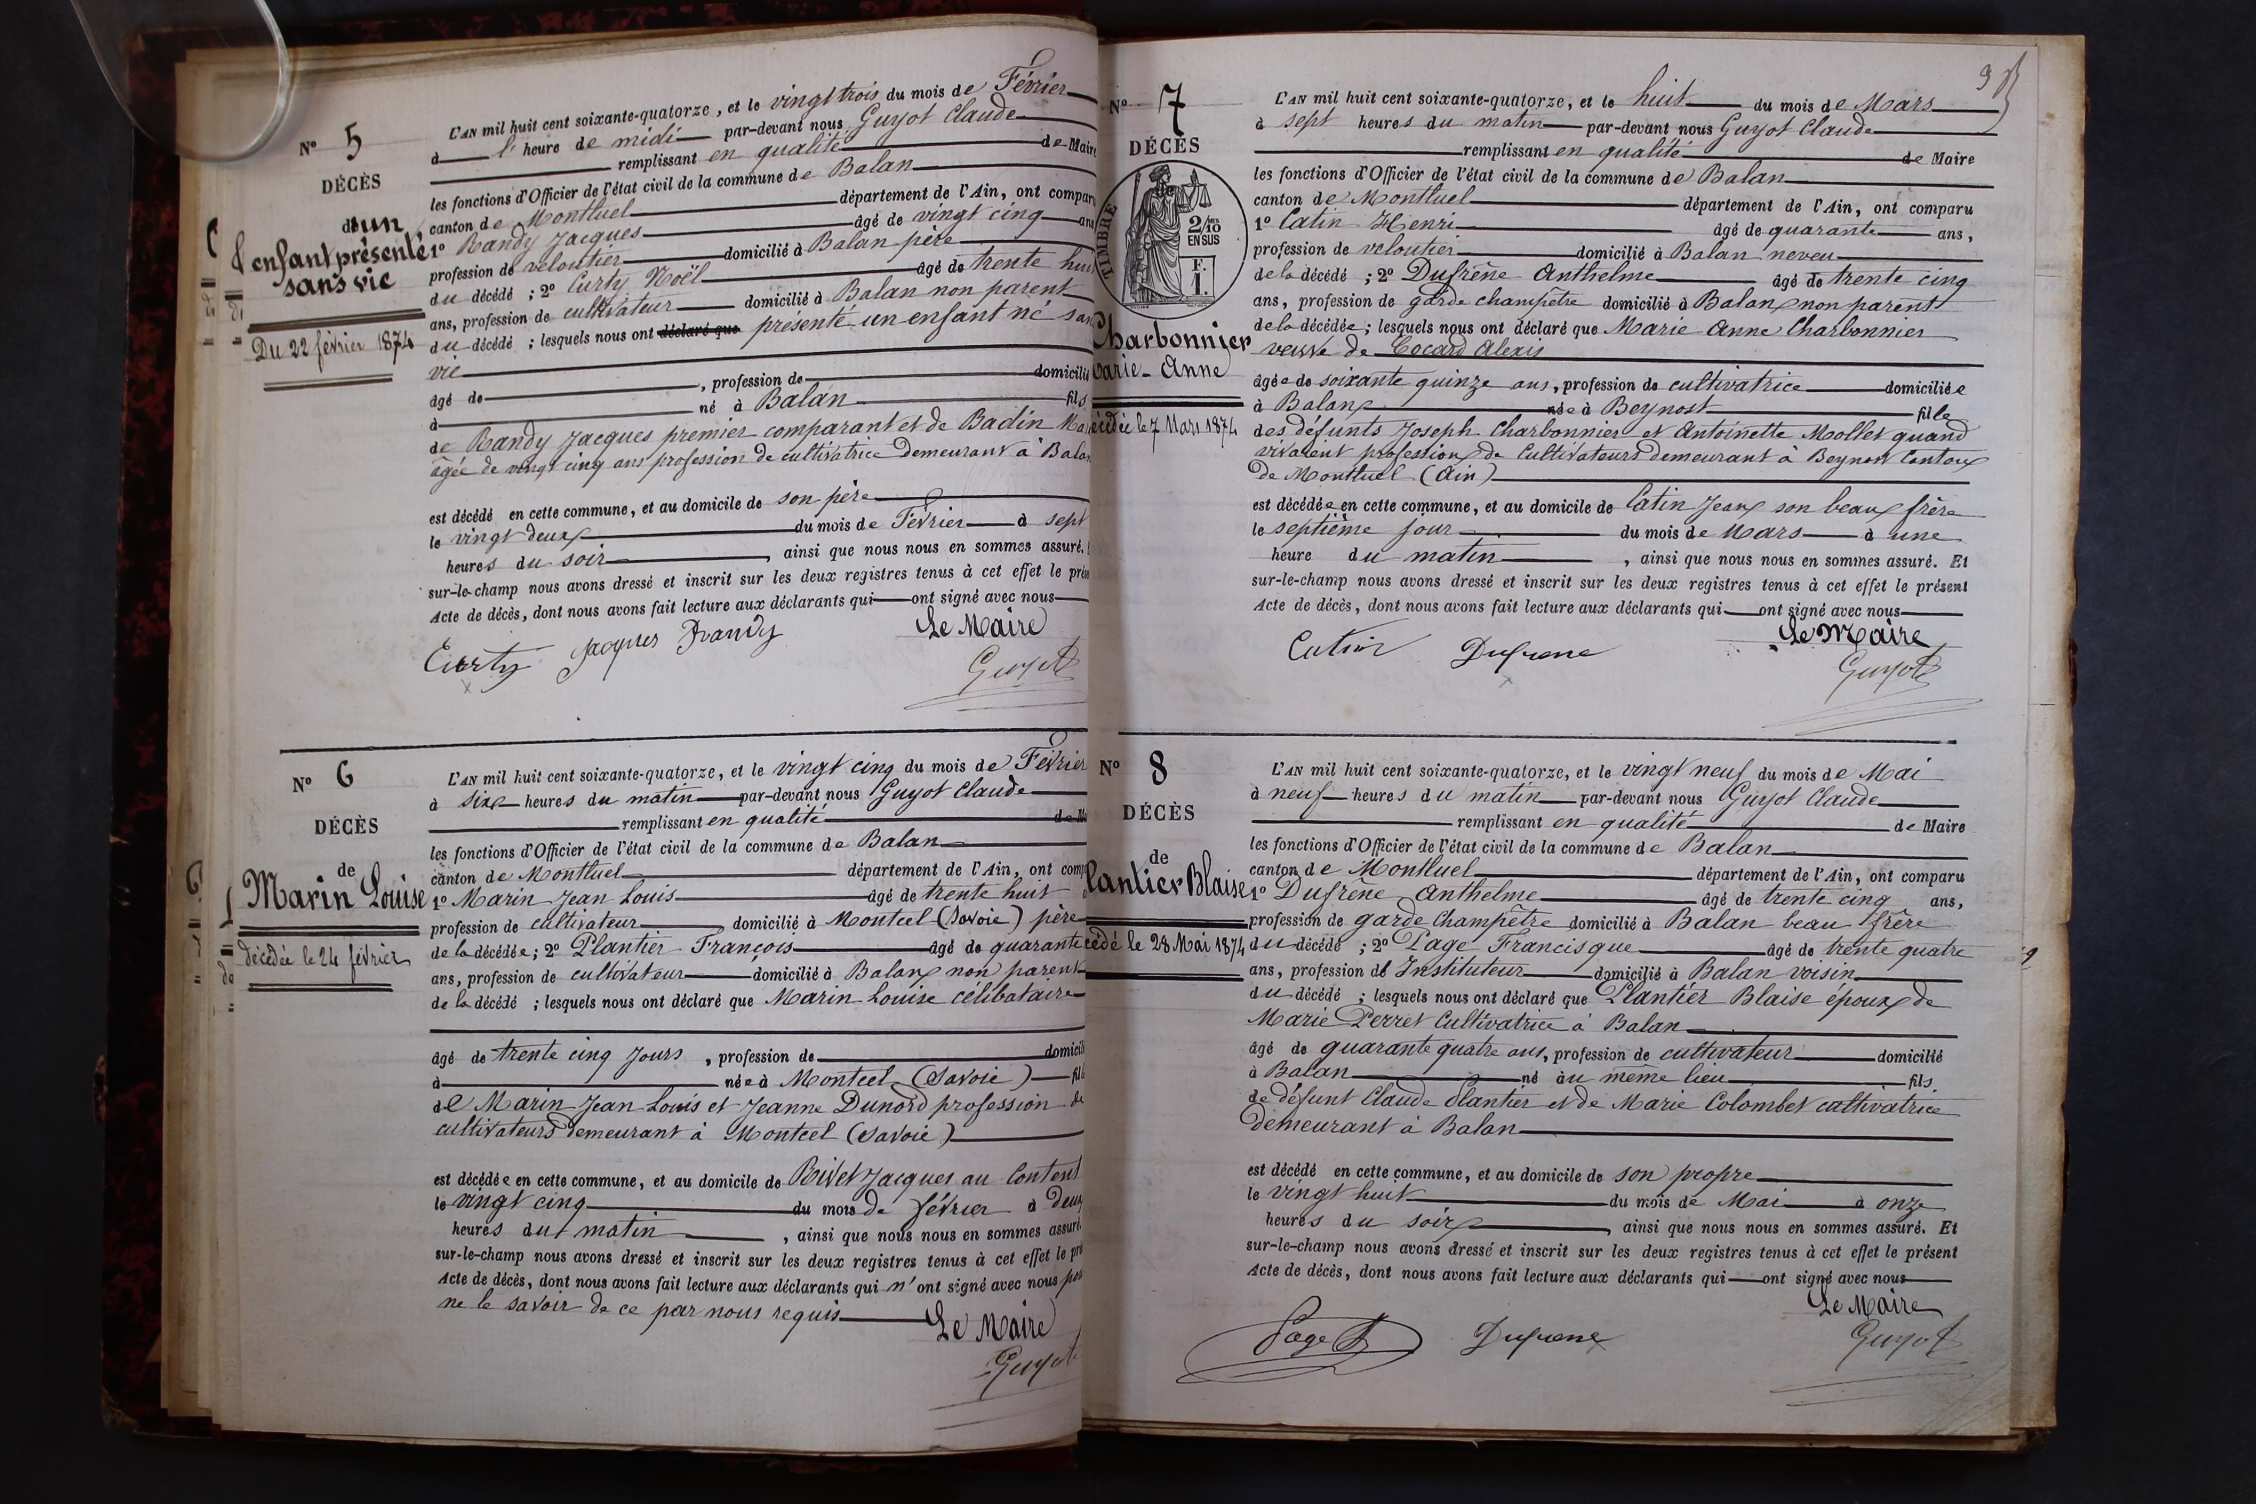 N° 5
DÉCÈS
d'un
enfant présenté
sans vie
Du 22 février 1874
L'AN mil huit cent soixante-quatorze, et le vingt trois du mois de Février
à l' heure de midi par-devant nous Guyot Claude
remplissant en qualité de Maire
les fonctions d'Officier de l'état civil de la commune de Balan
canton de Montluel département de l'Ain, ont compar
1° Randy Jacques âgé de vingt cinq ans
profession de veloutier domicilié à Balan père
du décédé ; 2° Curty Noël âgé de trente huit
ans, profession de cultivateur domicilié à Balan non parent
du décédé ; lesquels nous ont déclaré que présenté un enfant né sans
vie
âgé de , profession de domicilié
à né à Balan fils
de Randy Jacques premier comparant et de Badin Ma
âgée de vingt cinq ans profession de cultivatrice demeurant à Balan
est décédé en cette commune, et au domicile de son père
le vingt deux du mois de Février à sept
heures du soir , ainsi que nous nous en sommes assuré.
sur-le-champ nous avons dressé et inscrit sur les deux registres tenus à cet effet le prés
Acte de décès, dont nous avons fait lecture aux déclarants qui ont signé avec nous
Le Maire
Curty Jacques Randy Guyot
N° 6
DÉCÈS
de
Marin Louise
décédée le 24 février
L'AN mil huit cent soixante-quatorze, et le vingt cinq du mois de Février
à six heures du matin par-devant nous Guyot Claude
remplissant en qualité de M
les fonctions d'Officier de l'état civil de la commune de Balan
canton de Montluel département de l'Ain, ont comp
1° Marin Jean Louis âgé de trente huit
profession de cultivateur domicilié à Montcel (Savoie) père
de la décédée ; 2° Plantier François âgé de quarante
ans, profession de cultivateur domicilié à Balan non parent
de la décédé ; lesquels nous ont déclaré que Marin Louise célibataire
âgé de trente cinq jours , profession de domicili
à née à Montcel (Savoie) fil
de Marin Jean Louis et Jeanne Dunord profession de
cultivateurs demeurant à Montcel (Savoie)
est décédée en cette commune, et au domicile de Rivet Jacques au Content
le vingt cinq du mois de février à deux
heures du matin , ainsi que nous nous en sommes assuré.
sur-le-champ nous avons dressé et inscrit sur les deux registres tenus à cet effet le pré
Acte de décès, dont nous avons fait lecture aux déclarants qui n'ont signé avec nous pour
ne le savoir de ce par nous requis
Le Maire
Guyot
N° 7
DÉCÈS
TIMBRE
2/10 MES
EN SUS
F.
1.
Charbonnier
Marie-Anne
décédée le 7 Mars 1874
9
L'AN mil huit cent soixante-quatorze, et le huit du mois de Mars
à sept heures du matin par-devant nous Guyot Claude
remplissant en qualité de Maire
les fonctions d'Officier de l'état civil de la commune de Balan
canton de Montluel département de l'Ain, ont comparu
1° Catin Henri âgé de quarante ans,
profession de veloutier domicilié à Balan neveu
de la décédé ; 2° Dufrène Anthelme âgé de trente cinq
ans, profession de garde champêtre domicilié à Balan non parent
de la décédée ; lesquels nous ont déclaré que Marie Anne Charbonnier
veuve de Cocard Alexis
âgée de soixante quinze ans, profession de cultivatrice domiciliée
à Balan née à Beynost fille
des défunts Joseph Charbonnier et Antoinette Mollet quand
vivaient profession de Cultivateurs demeurant à Beynost Canton
de Montluel (Ain)
est décédée en cette commune, et au domicile de Catin Jean son beau frère
le septième jour du mois de Mars à une
heure du matin , ainsi que nous nous en sommes assuré. Et
sur-le-champ nous avons dressé et inscrit sur les deux registres tenus à cet effet le présent
Acte de décès, dont nous avons fait lecture aux déclarants qui ont signé avec nous
Le Maire
Catin Dufrene Guyot
N° 8
DÉCÈS
de
Plantier Blaise
décédé le 28 Mai 1874
L'AN mil huit cent soixante-quatorze, et le vingt neuf du mois de Mai
à neuf heures du matin par-devant nous Guyot Claude
remplissant en qualité de Maire
les fonctions d'Officier de l'état civil de la commune de Balan
canton de Montluel département de l'Ain, ont comparu
1° Dufrène Anthelme âgé de trente cinq ans,
profession de garde Champêtre domicilié à Balan beau frère
du décédé ; 2° Page Francisque âgé de trente quatre
ans, profession de Instituteur domicilié à Balan voisin
du décédé ; lesquels nous ont déclaré que Plantier Blaise époux de
Marie Perret Cultivatrice à Balan
âgé de quarante quatre ans, profession de cultivateur domicilié
à Balan né au même lieu fils
de défunt Claude Plantier et de Marie Colombet cultivatrice
demeurant à Balan
est décédé en cette commune, et au domicile de son propre
le vingt huit du mois de Mai à onze
heures du soir , ainsi que nous nous en sommes assuré. Et
sur-le-champ nous avons dressé et inscrit sur les deux registres tenus à cet effet le présent
Acte de décès, dont nous avons fait lecture aux déclarants qui ont signé avec nous
Le Maire
Page F Dufrene Guyot